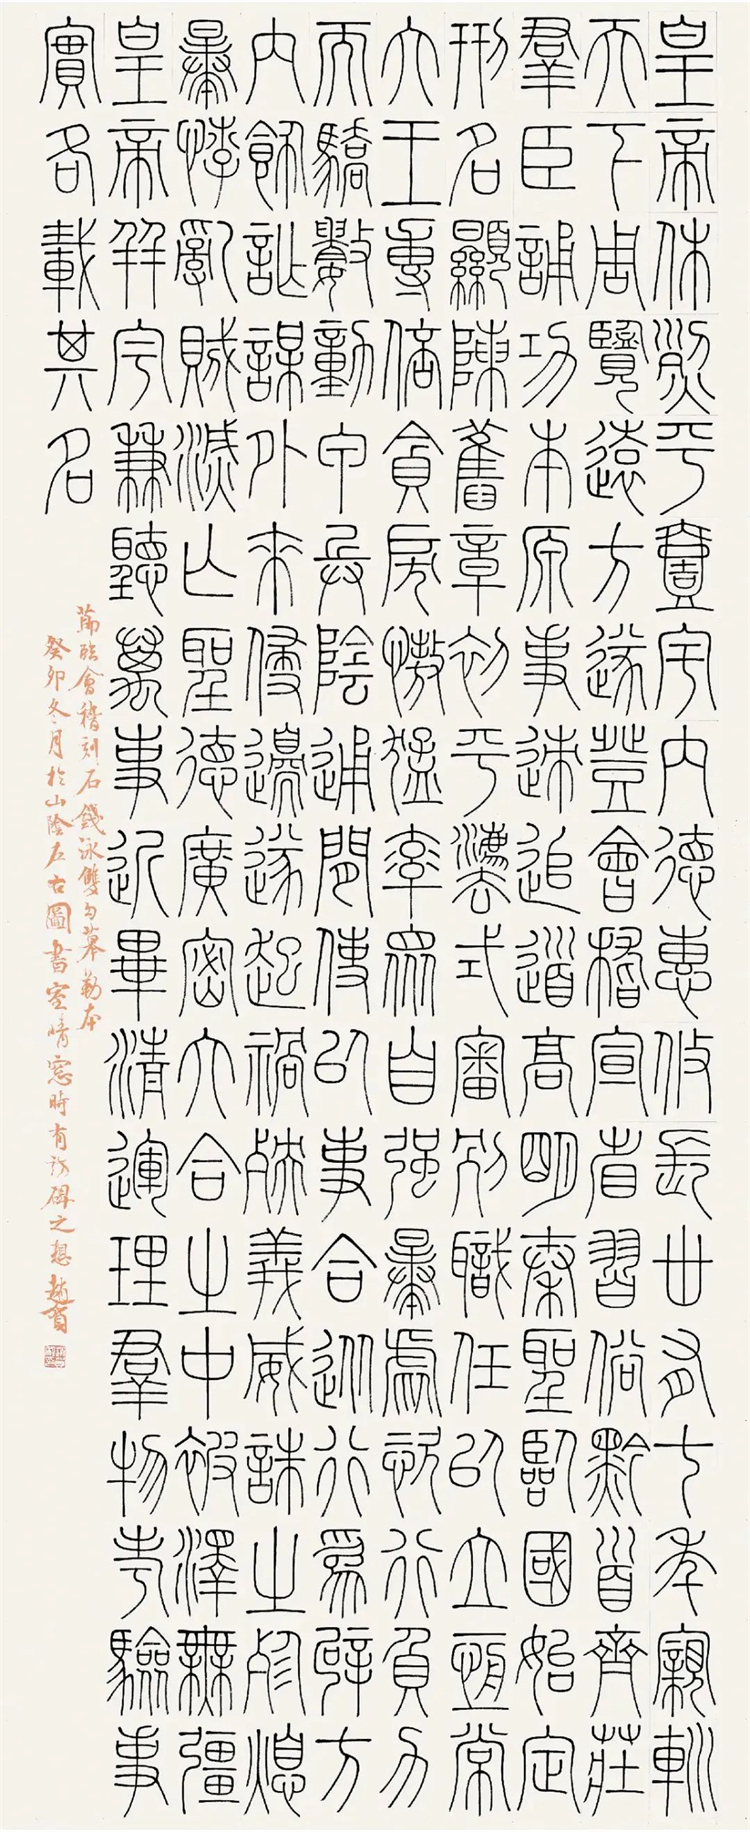 皇帝休烈平壹宇内德惠攸長丗有七年親巡
天下周覽遠方遂登會稽宣省習俗黔首齊莊
羣臣誦功本原事迹追道高明秦聖臨國始定
刑名顯陳舊章初平灋式審别職任以立恆常
六王專倍貪戾慠猛率眾自强暴虐恣行負力
而驕數動甲兵陰通閒使以事合從行爲辟方
内飾詐謀外來侵邊遂起禍殃義威誅之殄熄
暴悖亂賊滅亡聖德廣密六合之中被澤無彊
皇帝并宇兼聽萬事近畢清運理羣物考驗事
實各載其名
節臨會稽刻石錢泳雙勾摹勒本
癸卯冬月於山陰左右圖書室晴窓時有訪碑之想趙